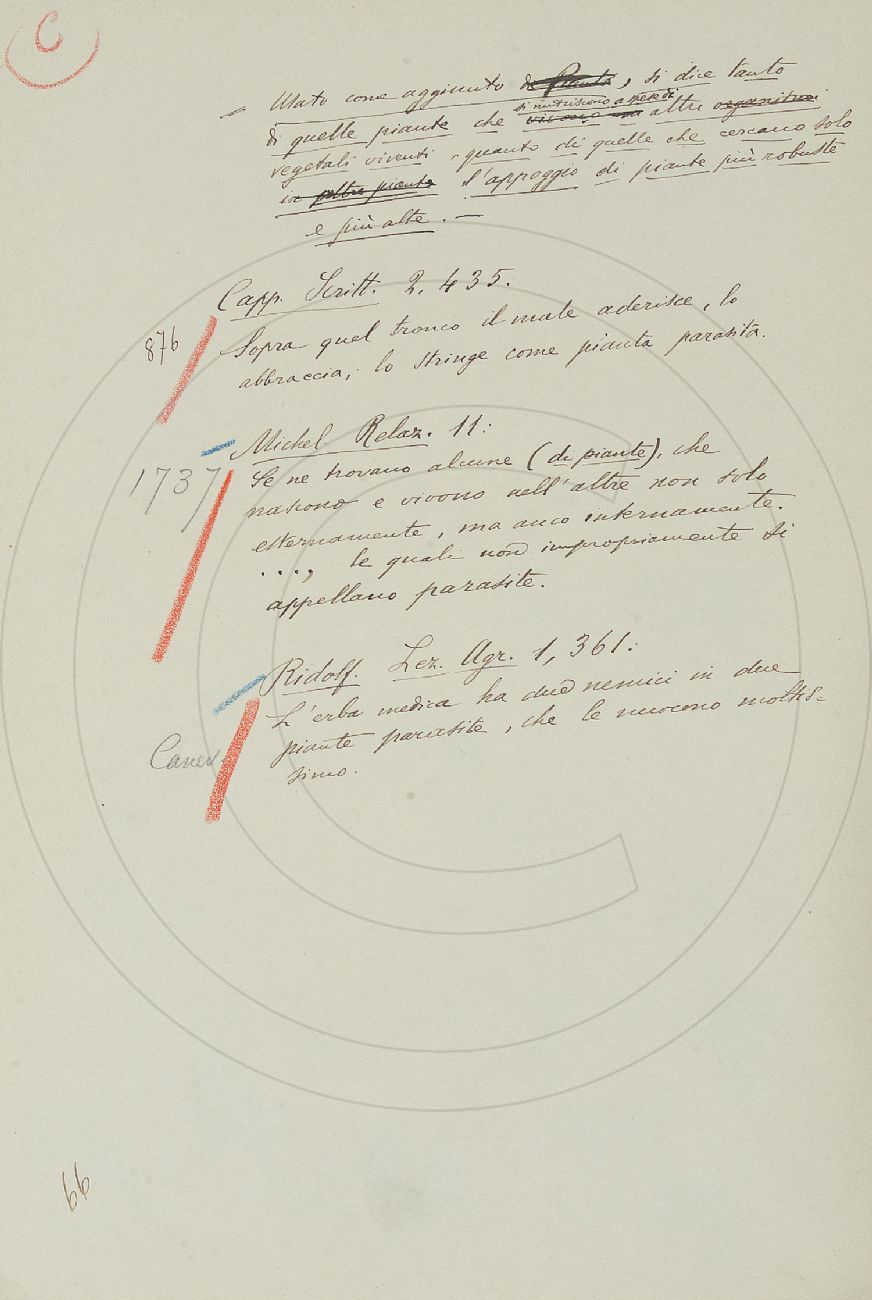 C
= Usato come aggiunto di Pianta, si dice tanto
si nutriscono a spese di
di quelle piante che vivono su altri organismi
vegetali viventi, quanto di quelle che cercano solo
in altre piante l'appoggio di piante più robuste
e più alte. —
Capp. Scritt. 2, 435.
876
Sopra quel tronco il male aderisce, lo
abbraccia, lo stringe come pianta parasita.
Michel. Relaz. 11:
1737
Se ne trovano alcune (di piante), che
nascono e vivono nell'altre non solo
esternamente, ma anco internamente.
...., le quali non impropriamente si
appellano parasite.
Ridolf. Lez. Agr. 1, 361:
L'erba medica ha due nemici in due
piante parasite, che le nuocono moltis-
simo.
66